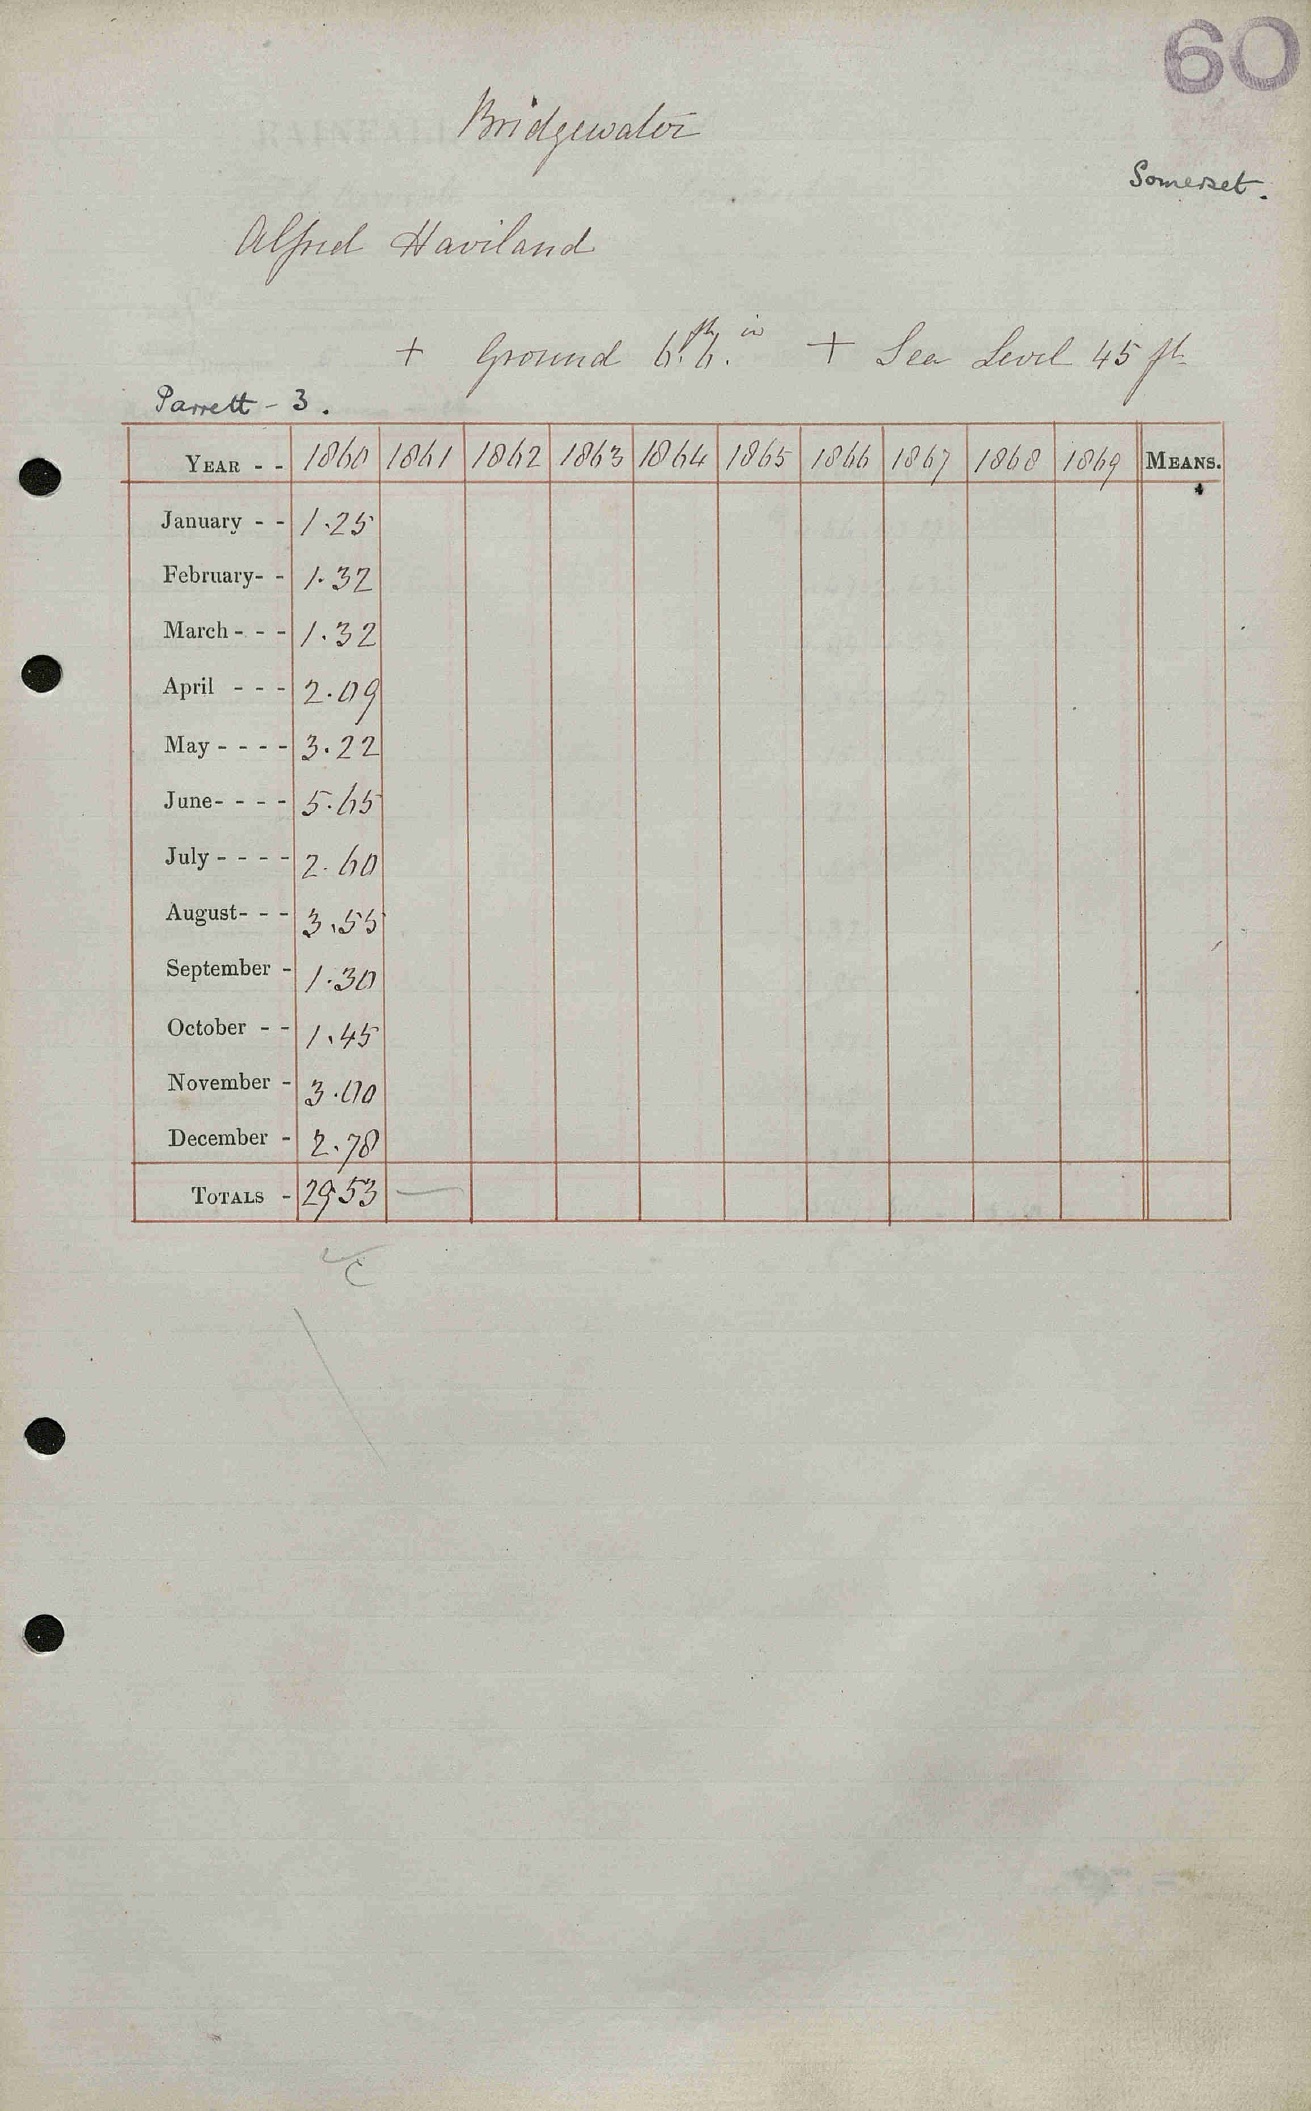 60
Bridgewater
Somerset.
Alfred Haviland
+ Ground 6.ft 6.in + Sea Level 45 ft
Parrett - 3.
YEAR - - 1860 1861 1862 1863 1864 1865 1866 1867 1868 1869 MEANS.
January - - 1.25
February- - 1.32
March - - - 1.32
April - - - 2.09
May - - - - 3.22
June- - - - 5.65
July - - - - 2.60
August- - - 3.55
September - 1.30
October - - 1.45
November - 3.00
December - 2.78
TOTALS - 29.53 —